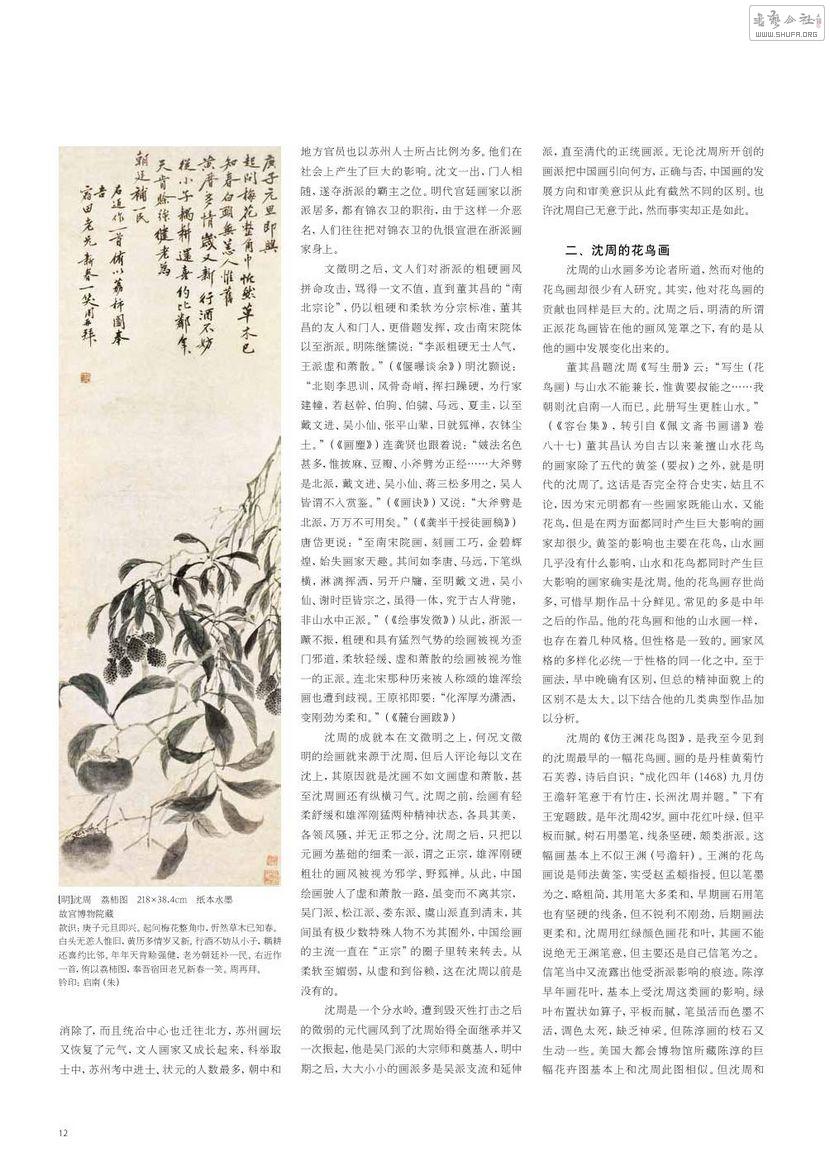 书艺公社
WWW.SHUFA.ORG
庚子元旦即兴
起问梅花整角巾忻然草木已
知春白头无恙人惟旧
黄历多情岁又新行酒不妨
从小子耦耕还喜约比邻年年
天肯赊强健老为
朝廷补一民
右近作一首侑以荔柿图奉
吾
宿田老兄新春一笑周再拜
[明]沈周 荔柿图 218×38.4cm 纸本水墨
故宫博物院藏
款识:庚子元旦即兴。起问梅花整角巾,忻然草木已知春。
白头无恙人惟旧,黄历多情岁又新。行酒不妨从小子,耦耕
还喜约比邻。年年天肯赊强健,老为朝廷补一民。右近作
一首,侑以荔柿图,奉吾宿田老兄新春一笑。周再拜。
钤印:启南(朱)
消除了,而且统治中心也迁往北方,苏州画坛
又恢复了元气,文人画家又成长起来,科举取
士中,苏州考中进士、状元的人数最多,朝中和
地方官员也以苏州人士所占比例为多。他们在
社会上产生了巨大的影响。沈文一出,门人相
随,遂夺浙派的霸主之位。明代宫廷画家以浙
派居多,都有锦衣卫的职衔,由于这样一介恶
名,人们往往把对锦衣卫的仇恨宣泄在浙派画
家身上。
文徵明之后,文人们对浙派的粗硬画风
拼命攻击,骂得一文不值,直到董其昌的“南
北宗论”,仍以粗硬和柔软为分宗标准,董其
昌的友人和门人,更借题发挥,攻击南宋院体
以至浙派。明陈继儒说:“李派粗硬无士人气,
王派虚和萧散。”(《偃曝谈余》)明沈颢说:
“北则李思训,风骨奇峭,挥扫躁硬,为行家
建幢,若赵幹、伯驹、伯骕、马远、夏圭,以至
戴文进、吴小仙、张平山辈,日就狐禅,衣钵尘
土。”(《画麈》)连龚贤也跟着说:“皴法名色
甚多,惟披麻、豆瓣、小斧劈为正经……大斧劈
是北派,戴文进、吴小仙、蒋三松多用之,吴人
皆谓不入赏鉴。”(《画诀》)又说:“大斧劈是
北派,万万不可用矣。”(《龚半千授徒画稿》)
唐岱更说:“至南宋院画,刻画工巧,金碧辉
煌,始失画家天趣。其间如李唐、马远,下笔纵
横,淋漓挥洒,另开户牖,至明戴文进,吴小
仙、谢时臣皆宗之,虽得一体,究于古人背驰,
非山水中正派。”(《绘事发微》)从此,浙派一
蹶不振,粗硬和具有猛烈气势的绘画被视为歪
门邪道,柔软轻缓、虚和萧散的绘画被视为惟
一的正派。连北宋那种历来被人称颂的雄浑绘
画也遭到歧视。王原祁即要:“化浑厚为潇洒,
变刚劲为柔和。”(《麓台画跋》)
沈周的成就本在文徵明之上,何况文徵
明的绘画就来源于沈周,但后人评论每以文在
沈上,其原因就是沈画不如文画虚和萧散,甚
至沈周画还有纵横习气。沈周之前,绘画有轻
柔舒缓和雄浑刚猛两种精神状态,各具其美,
各领风骚,并无正邪之分。沈周之后,只把以
元画为基础的细柔一派,谓之正宗,雄浑刚硬
粗壮的画风被视为邪学,野狐禅。从此,中国
绘画驶入了虚和萧散一路,虽变而不离其宗,
吴门派、松江派、娄东派、虞山派直到清末,其
间虽有极少数特殊人物不为其囿外,中国绘画
的主流一直在“正宗”的圈子里转来转去。从
柔软至媚弱,从虚和到俗赖,这在沈周以前是
没有的。
沈周是一个分水岭。遭到毁灭性打击之后
的微弱的元代画风到了沈周始得全面继承并又
一次振起,他是吴门派的大宗师和奠基人,明中
期之后,大大小小的画派多是吴派支流和延伸
派,直至清代的正统画派。无论沈周所开创的
画派把中国画引向何方,正确与否,中国画的发
展方向和审美意识从此有截然不同的区别。也
许沈周自己无意于此,然而事实却正是如此。
二、沈周的花鸟画
沈周的山水画多为论者所道,然而对他的
花鸟画却很少有人研究。其实,他对花鸟画的
贡献也同样是巨大的。沈周之后,明清的所谓
正派花鸟画皆在他的画风笼罩之下,有的是从
他的画中发展变化出来的。
董其昌题沈周《写生册》云:“写生(花
鸟画)与山水不能兼长,惟黄要叔能之……我
朝则沈启南一人而已。此册写生更胜山水。”
(《容台集》,转引自《佩文斋书画谱》卷
八十七)董其昌认为自古以来兼擅山水花鸟
的画家除了五代的黄筌(要叔)之外,就是明
代的沈周了。这话是否完全符合史实,姑且不
论,因为宋元明都有一些画家既能山水,又能
花鸟,但是在两方面都同时产生巨大影响的画
家却很少。黄筌的影响也主要在花鸟,山水画
几乎没有什么影响,山水和花鸟都同时产生巨
大影响的画家确实是沈周。他的花鸟画存世尚
多,可惜早期作品十分鲜见。常见的多是中年
之后的作品。他的花鸟画和他的山水画一样,
也存在着几种风格。但性格是一致的。画家风
格的多样化必统一于性格的同一化之中。至于
画法,早中晚确有区别,但总的精神面貌上的
区别不是太大。以下结合他的几类典型作品加
以分析。
沈周的《仿王渊花鸟图》,是我至今见到
的沈周最早的一幅花鸟画。画的是丹桂黄菊竹
石芙蓉,诗后自识:“成化四年(1468)九月仿
王澹轩笔意于有竹庄,长洲沈周并题。”下有
王宠题跋。是年沈周42岁。画中花红叶绿,但平
板而腻。树石用墨笔,线条坚硬,颇类浙派。这
幅画基本上不似王渊(号澹轩)。王渊的花鸟
画说是师法黄筌,实受赵孟頫指授。但以笔墨
为之,略粗简,其用笔大多柔和,早期画石用笔
也有坚硬的线条,但不锐利不刚劲,后期画法
更柔和。沈周用红绿颜色画花和叶,其画不能
说绝无王渊笔意,但主要还是自己信笔为之。
信笔当中又流露出他受浙派影响的痕迹。陈淳
早年画花叶,基本上受沈周这类画的影响。绿
叶布置状如算子,平板而腻,笔虽活而色墨不
活,调色太死,缺乏神采。但陈淳画的枝石又
生动一些。美国大都会博物馆所藏陈淳的巨
幅花卉图基本上和沈周此图相似。但沈周和
12